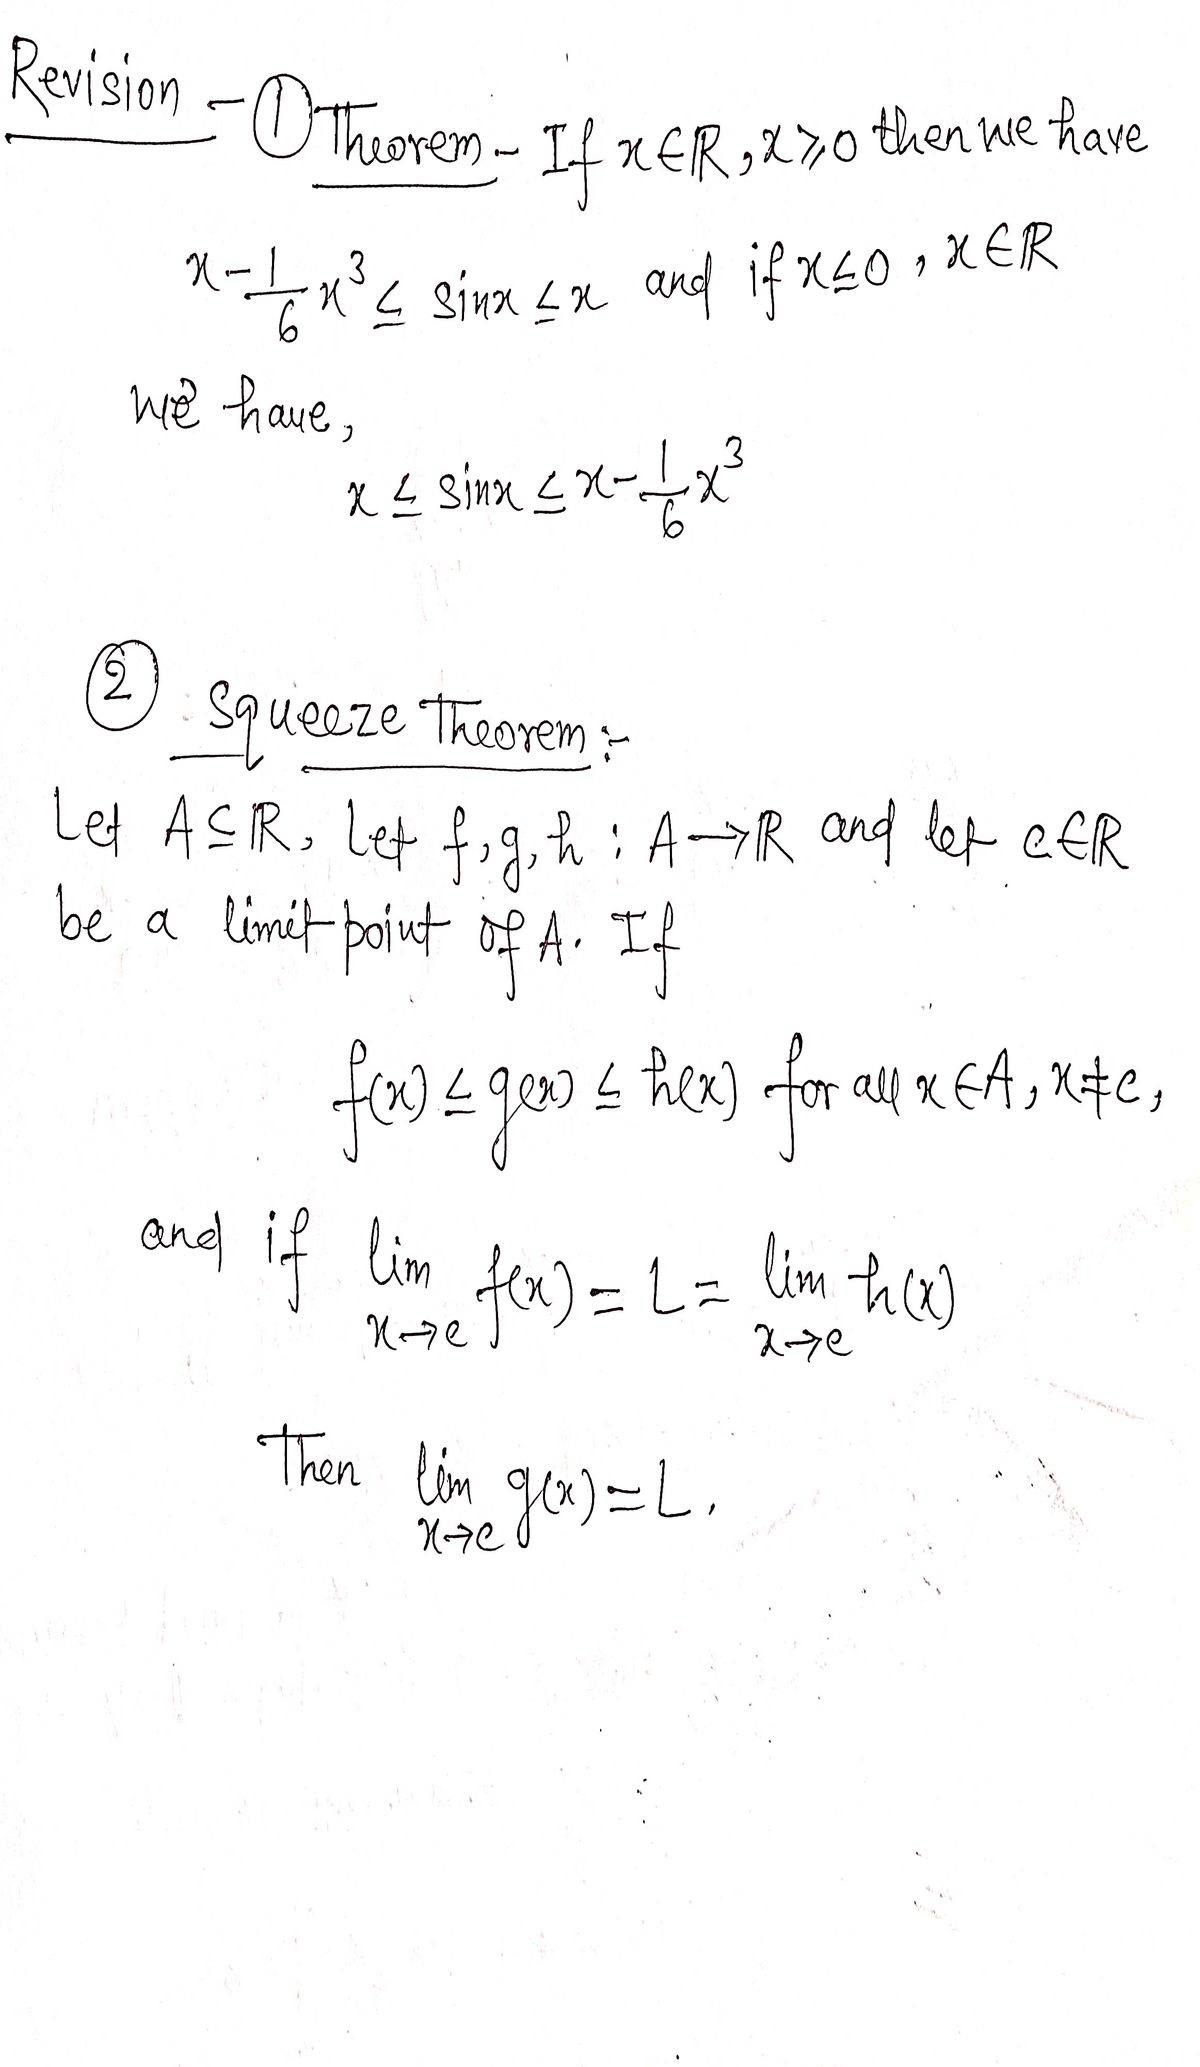 Revision - ① Theorem - If x∈ℝ, x⩾0 then we have
x - 1/6 x³ ≤ sinx ≤ x and if x≤0, x∈ℝ
we have,
x ≤ sinx ≤ x - 1/6 x³
② Squeeze Theorem :-
Let A⊆ℝ, Let f, g, h : A→ℝ and let c∈ℝ
be a limit point of A. If
f(x) ≤ g(x) ≤ h(x) for all x∈A, x≠c,
and if lim x→c f(x) = L = lim x→c h(x)
Then lim x→c g(x) = L.